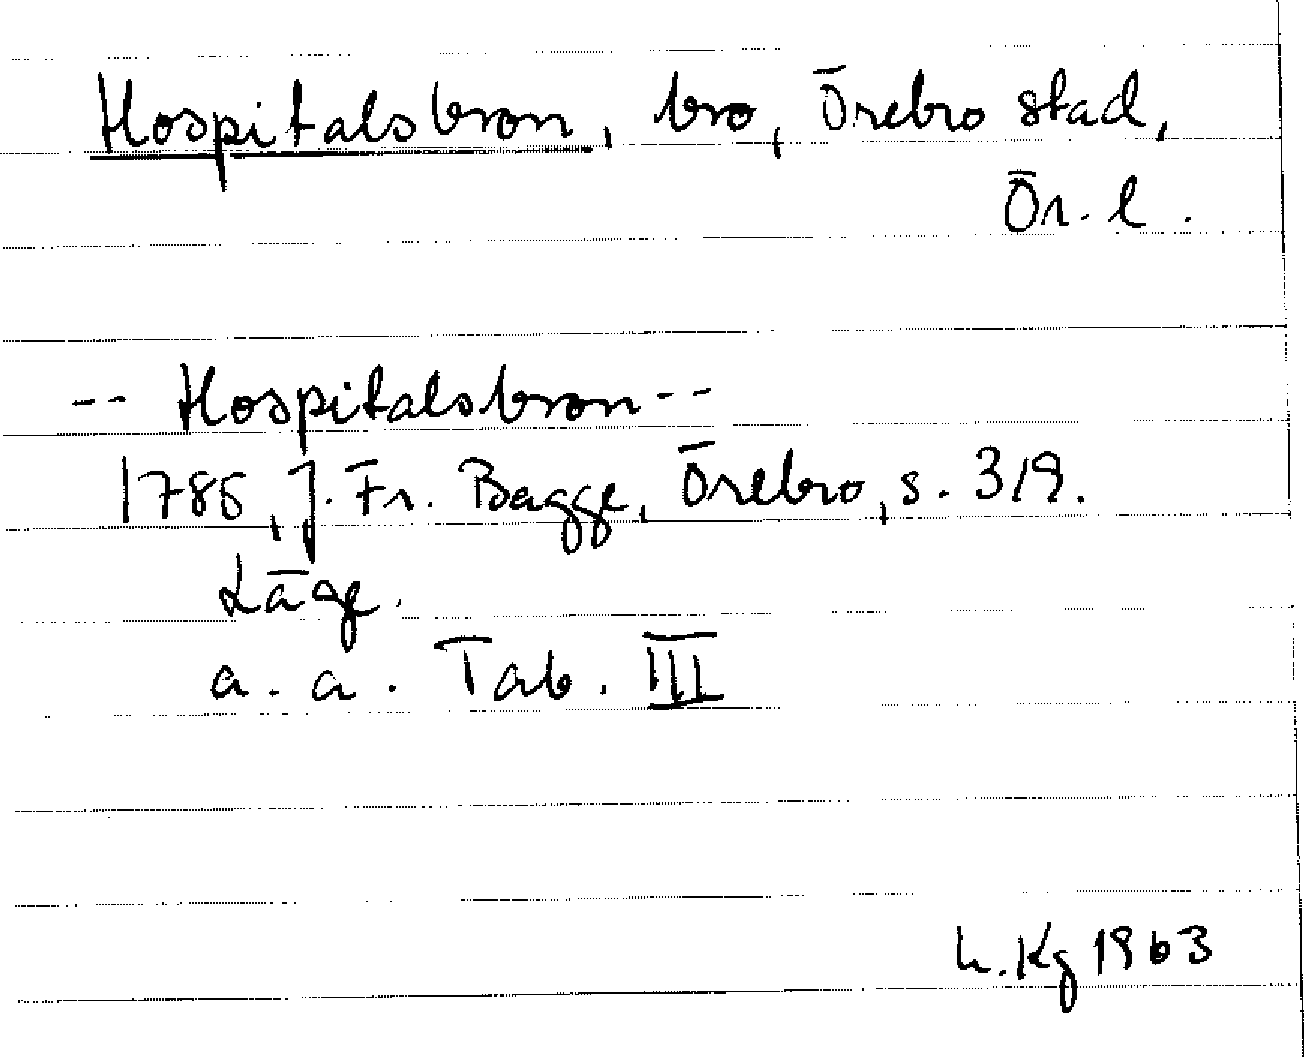 Hospitalsbron, bro, Örebro stad,
Ör. l.
-- Hospitalsbron --
1785, J. Fr. Bagge, Örebro, s. 319.
Läge.
a. a. Tab. III
L. Kg 1963